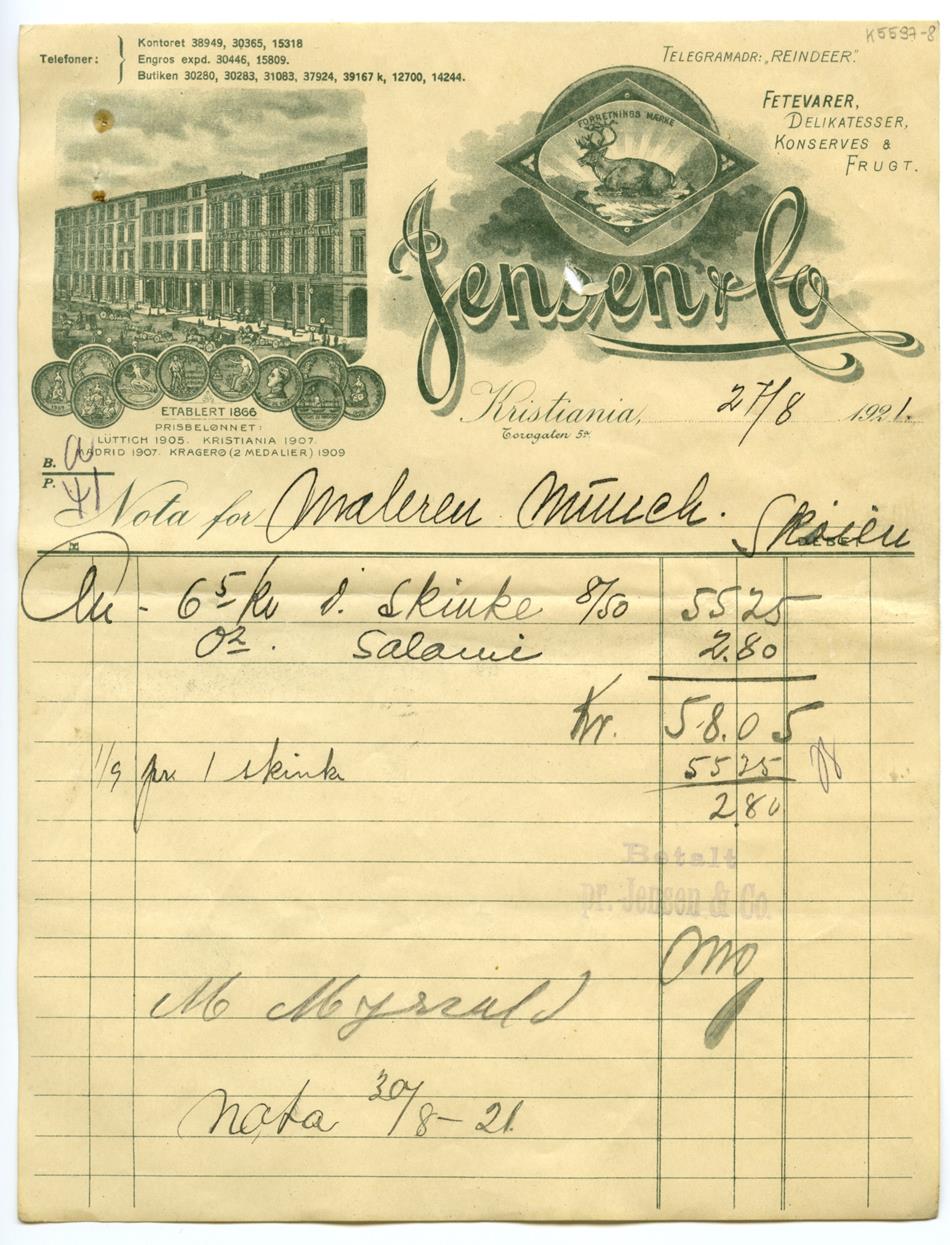 K5597-8
Telefoner: Kontoret 38949, 30365, 15318
Engros expd. 30446, 15809.
Butiken 30280, 30283, 31083, 37924, 39167 k, 12700, 14244.
TELEGRAMADR: „REINDEER".
FETEVARER,
DELIKATESSER,
KONSERVES &
FRUGT.
FORRETNINGS MÆRKE
Jensen & Co
ETABLERT 1866
PRISBELØNNET:
LÜTTICH 1905. KRISTIANIA 1907.
MADRID 1907. KRAGERØ (2 MEDALIER) 1909
Kristiania, 27/8 1921.
Torvgaten 5a
B.
P. 41
Nota for Maleren Münch. Skøien
DEBET
6 5 kv d. Skinke 8/50 55 25
0 2. Salami 2.80
Kr. 58.05
1/9 pr 1 skinke 55 25
2 80
Betalt
pr. Jensen & Co.
M
Nota 30/8-21.